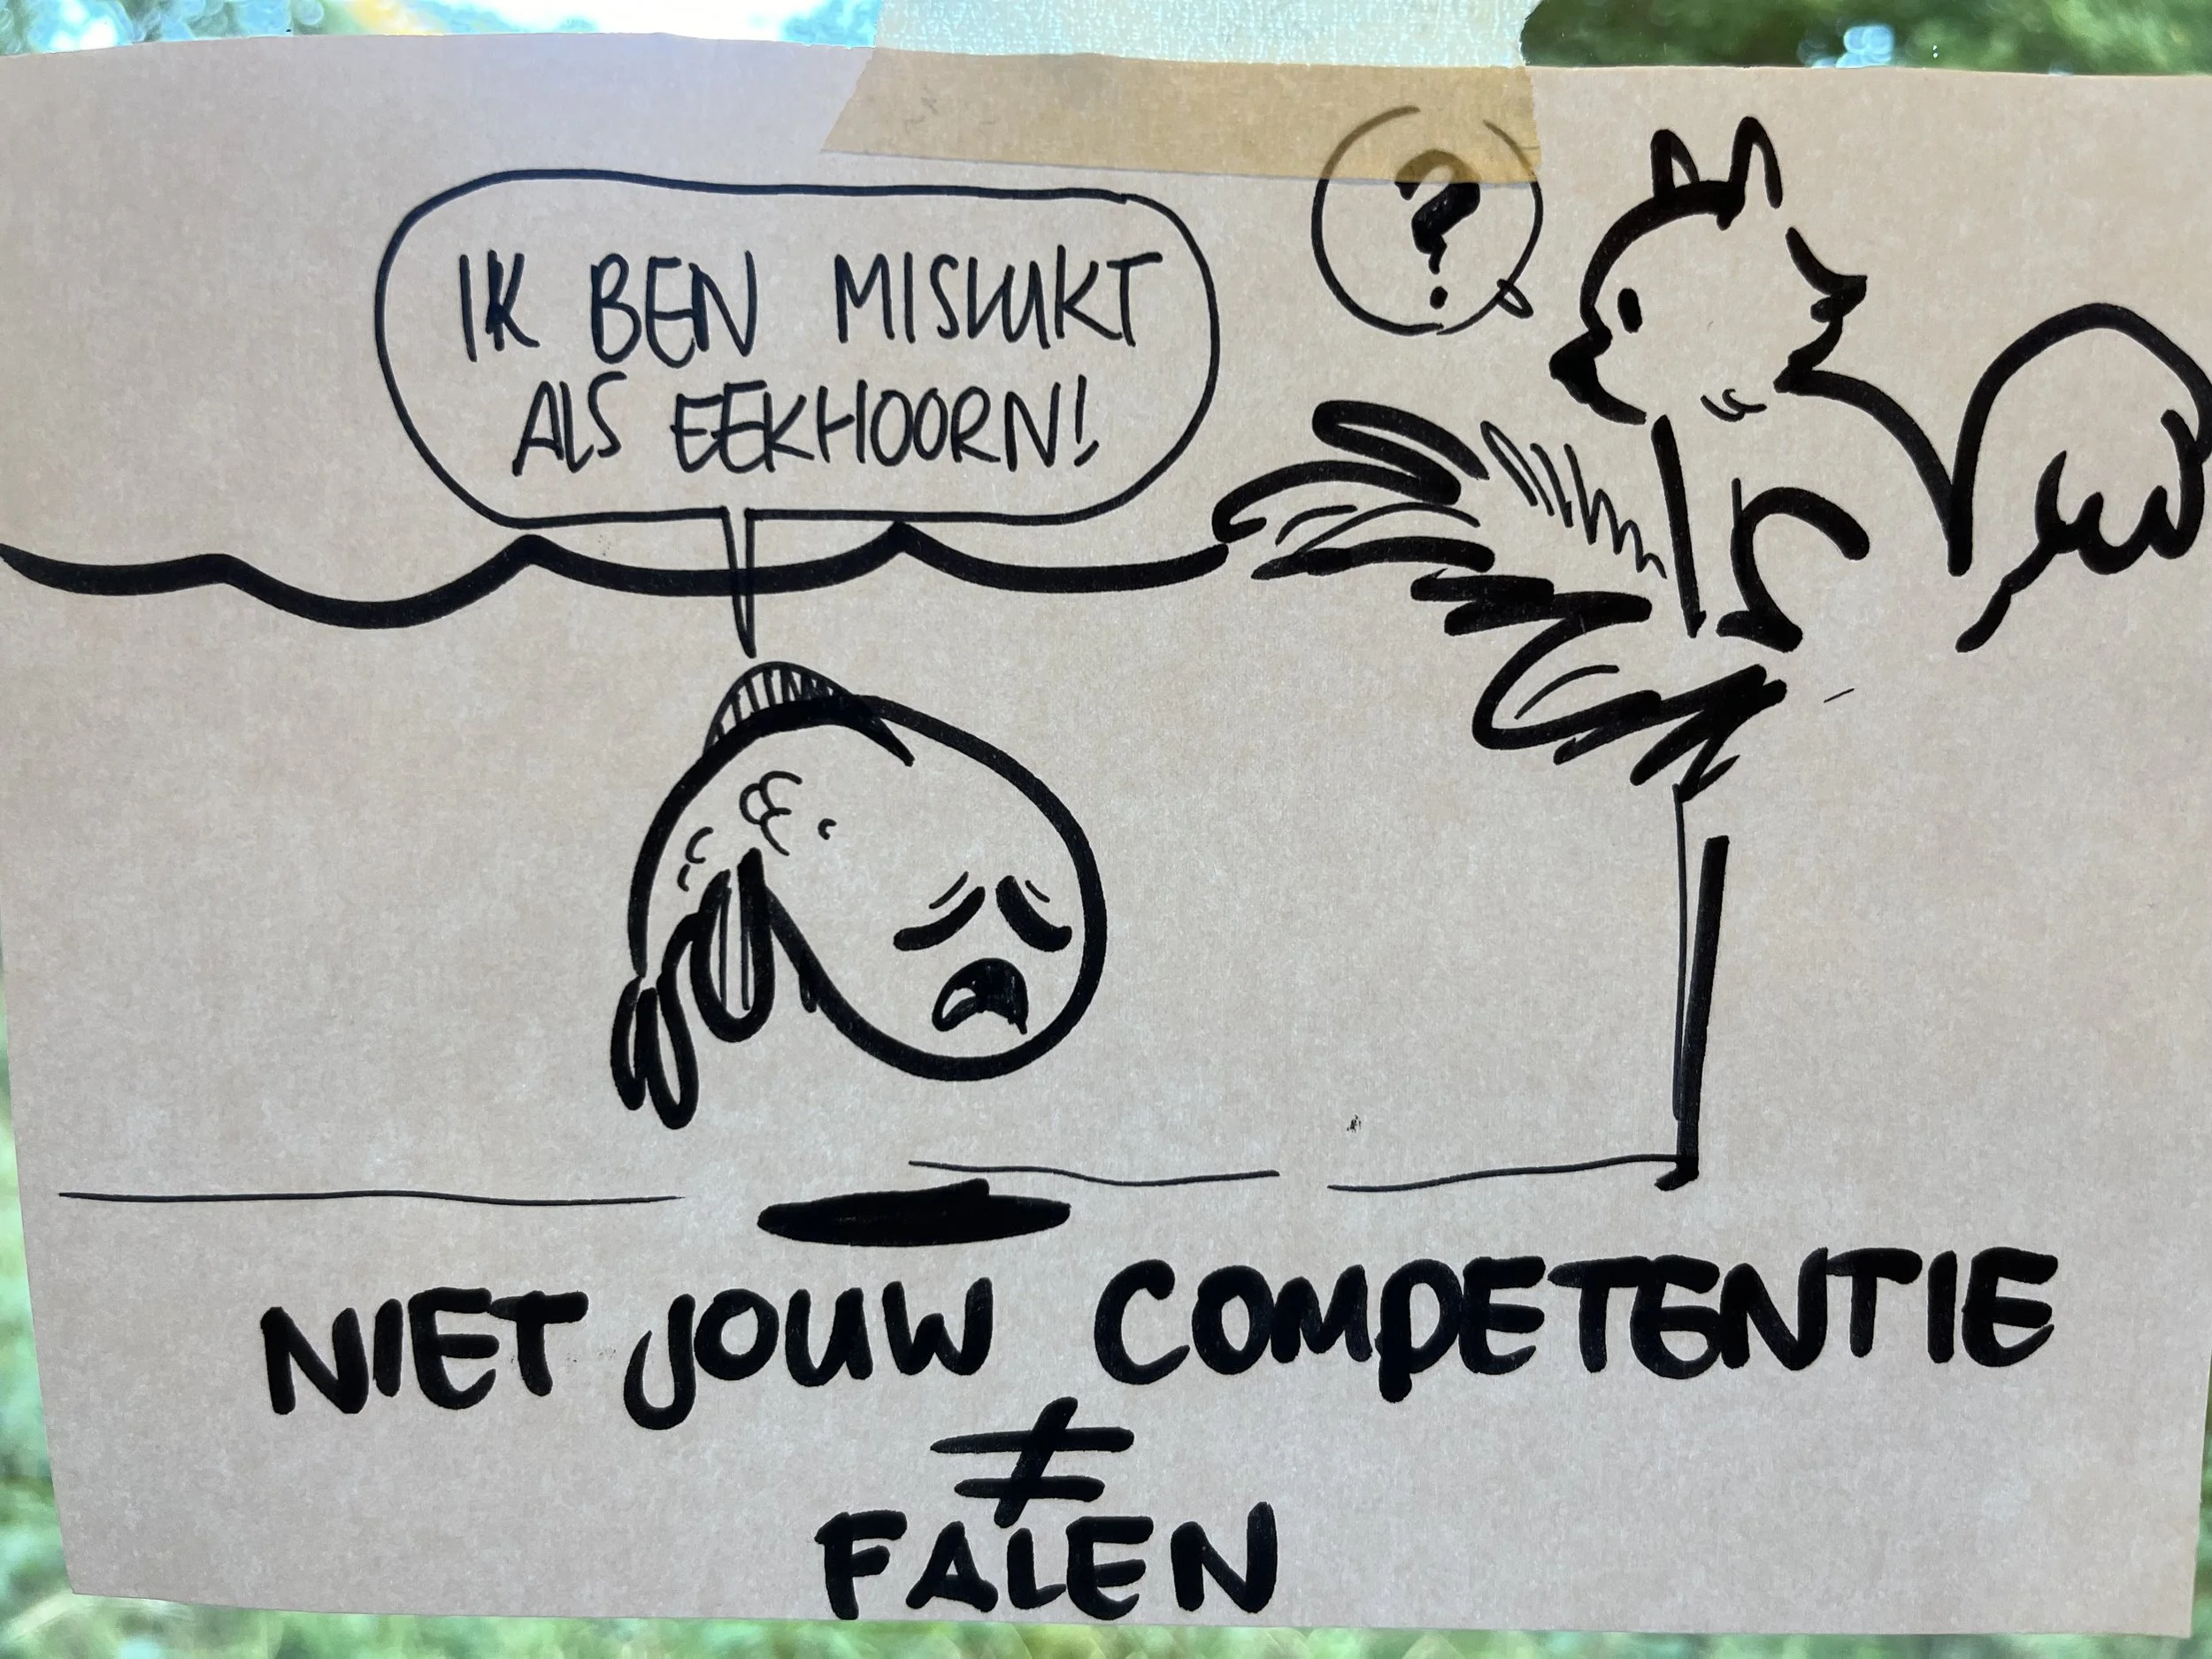 IK BEN MISLUKT
ALS EEKHOORN!
?
NIET JOUW COMPETENTIE
≠
FALEN